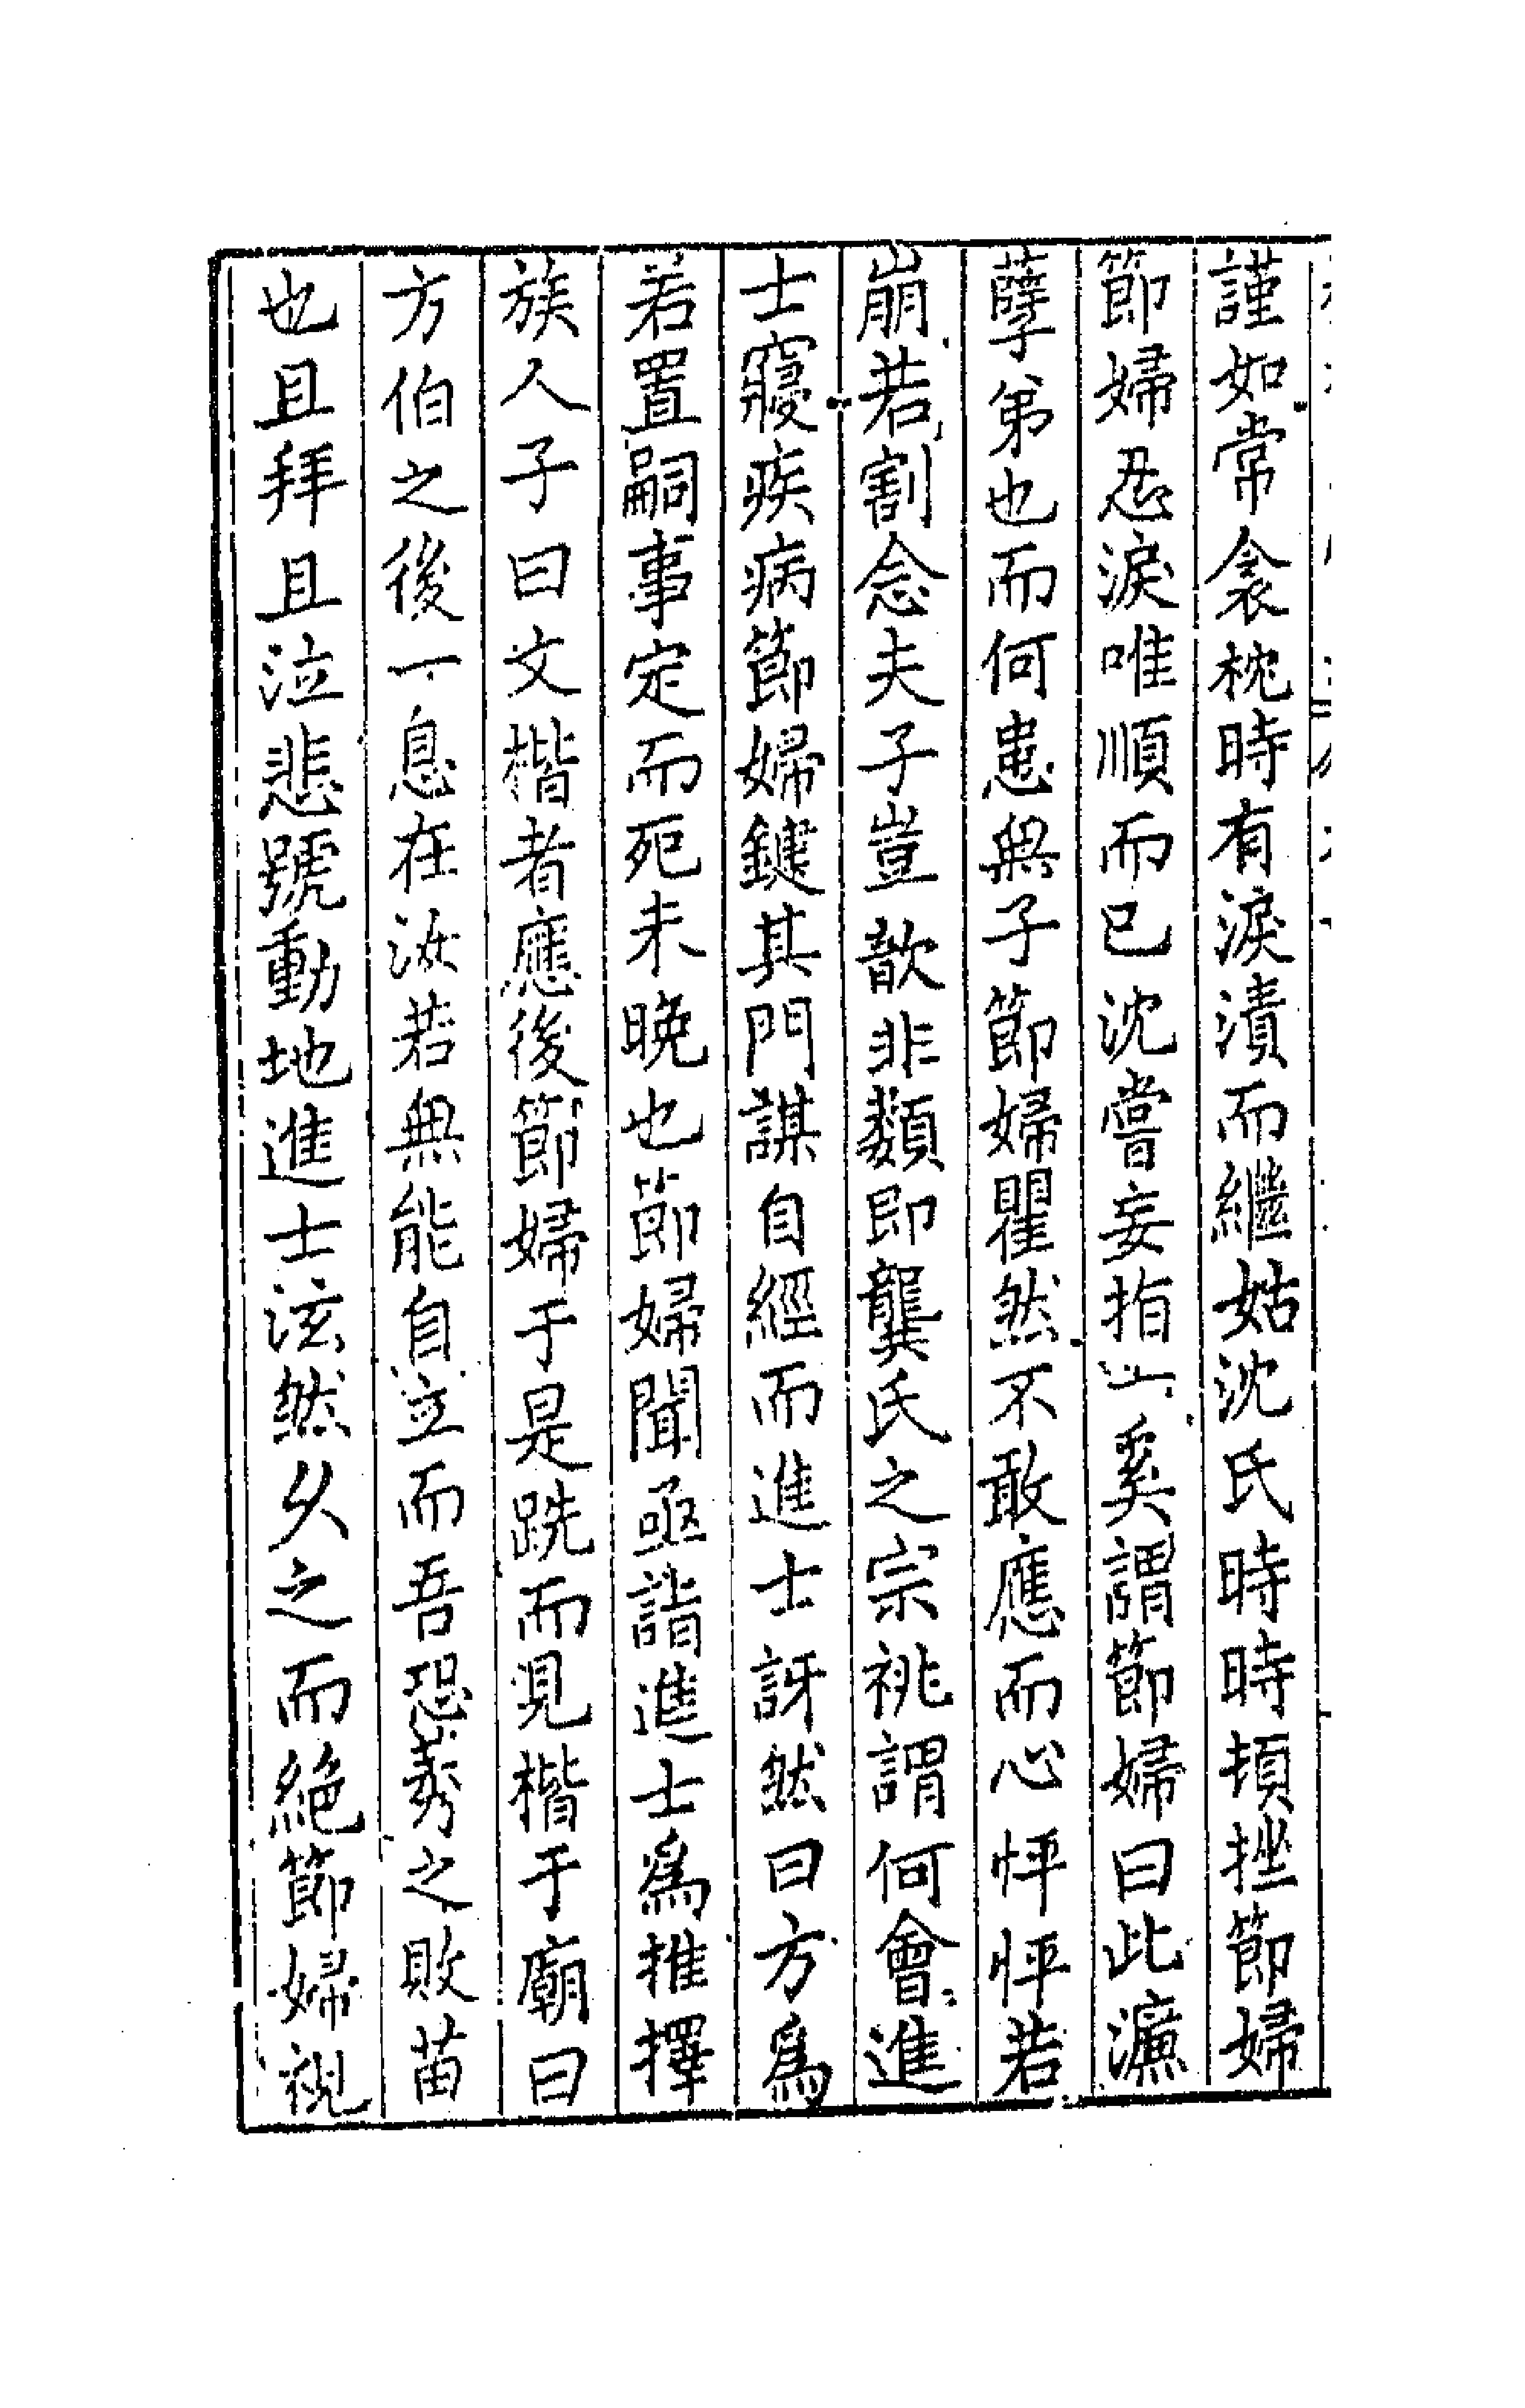 謹如常衾枕時有淚漬而繼姑沈氏時時頓挫節婦
節婦忍淚唯順而已沈嘗妄指一奚謂節婦曰此濂
孽弟也而何患無子節婦瞿然不敢應而心怦怦若
崩若割念夫子豈歆非類即龔氏之宗祧謂何會進
士寢疾病節婦鍵其門謀自經而進士訝然曰方爲
若置嗣事定而死未晚也節婦聞亟詣進士爲推擇
族人子曰文楷者應後節婦于是跣而見楷于廟曰
方伯之後一息在汝若無能自立而吾恐莠之敗苗
也且拜且泣悲號動地進士泫然久之而絕節婦視